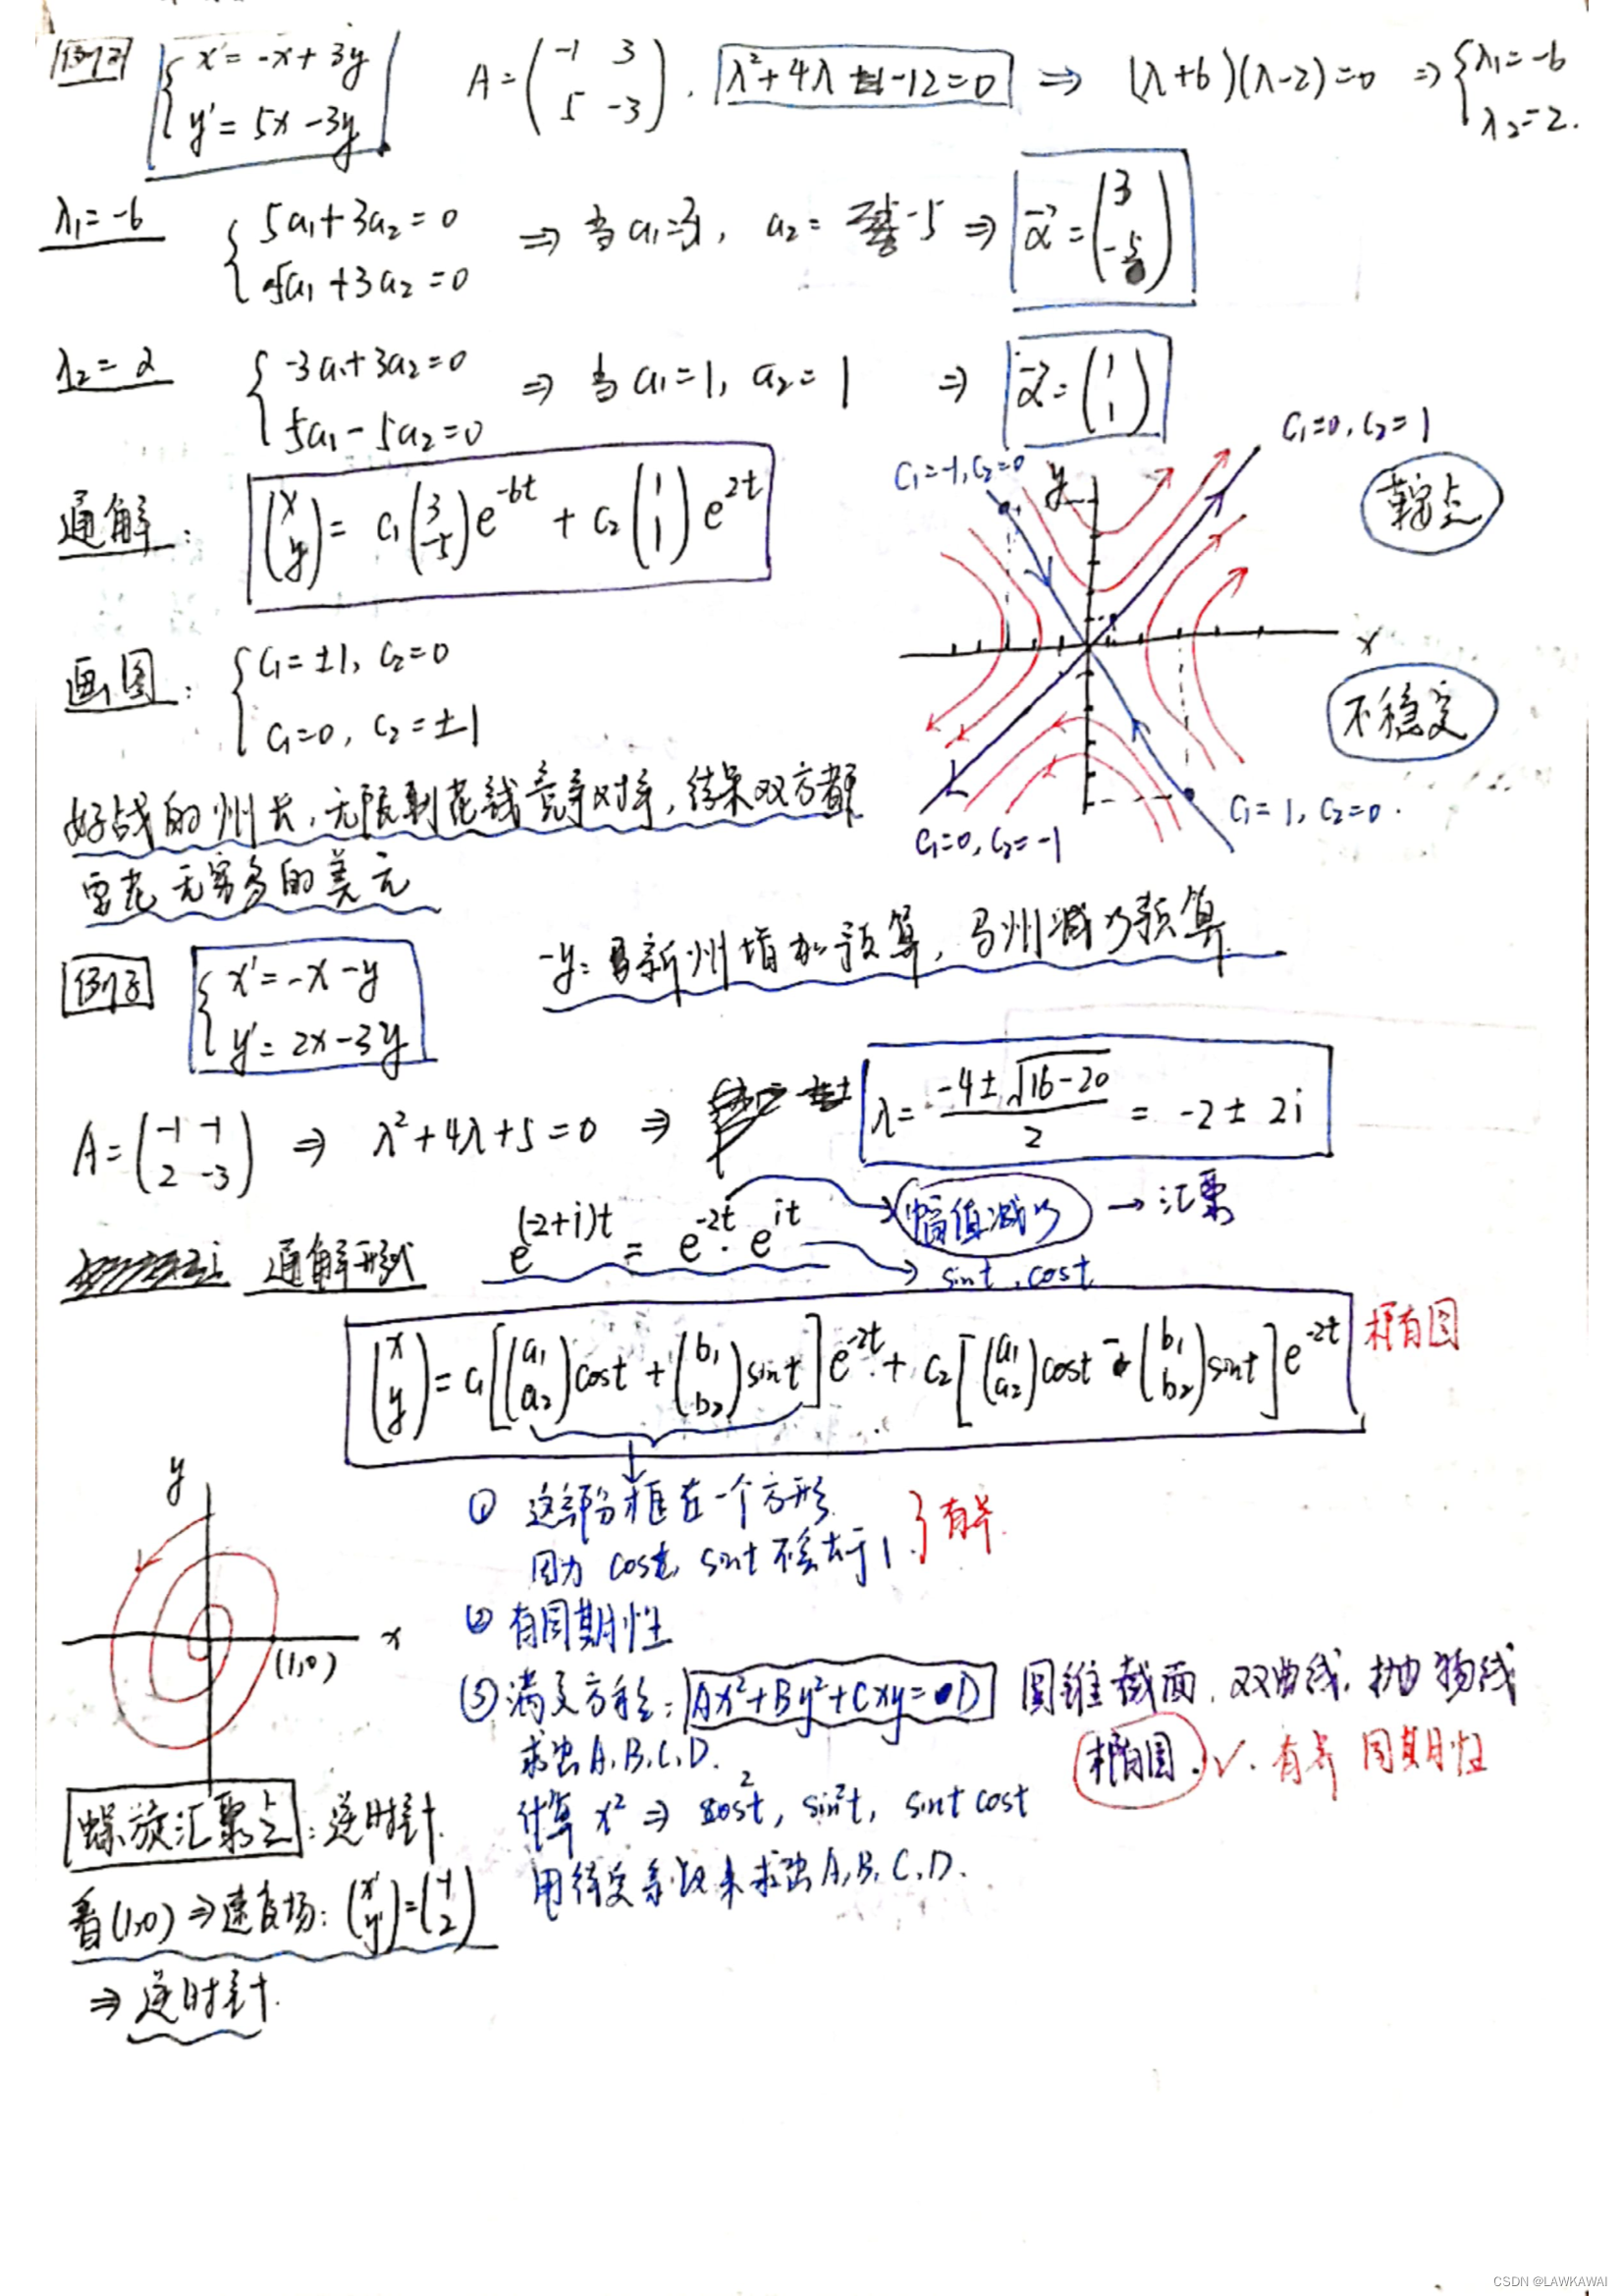 例2 { x' = -x + 3y
y' = 5x - 3y
A = (-1 3
5 -3). λ²+4λ -12=0 ⇒ (λ+6)(λ-2)=0 ⇒ { λ1=-6
λ2=2.
λ1=-6 { 5a1+3a2=0
5a1+3a2=0 ⇒ 当 a1=3, a2= -5 ⇒ α⃗=(3
-5)
λ2=2 { -3a1+3a2=0
5a1-5a2=0 ⇒ 当 a1=1, a2=1 ⇒ α⃗=(1
1)
通解: (x
y) = C1(3
-5)e^-6t + C2(1
1)e^2t
C1=-1, C2=0
C1=0, C2=1
y
x
鞍点
不稳定
C1=1, C2=0.
C1=0, C2=-1
画图: { C1=±1, C2=0
C1=0, C2=±1
好战的州长,无限制花钱竞争对手,结果双方都
要花无穷多的美元
例3 { x'=-x-y
y'=2x-3y
-y: 新州增加预算, 马州减少预算
A=(-1 -1
2 -3) ⇒ λ²+4λ+5=0 ⇒ λ= (-4±√16-20)/2 = -2±2i
通解形式 e^(-2+i)t = e^-2t · e^it
幅值减少 → 汇聚
sint, cost
(x
y) = C1[(a1
a2)cost + (b1
b2)sint]e^-2t + C2[(a1
a2)cost - (b1
b2)sint]e^-2t 椭圆
① 这部分框在一个方形
因为 cost, sint 不会大于1. } 有界.
② 有周期性
③ 满足方程: Ax²+By²+Cxy=D 圆锥截面, 双曲线, 抛物线
椭圆. ✓. 有界 周期性
求出A,B,C,D.
计算 x² ⇒ cos²t, sin²t, sint cost
用待定系数来求出A,B,C,D.
y
x
(1,0)
螺旋汇聚点: 逆时针
看(1,0) ⇒ 速度场: (x'
y')=(-1
2)
⇒ 逆时针.
CSDN @LAWKAWAI